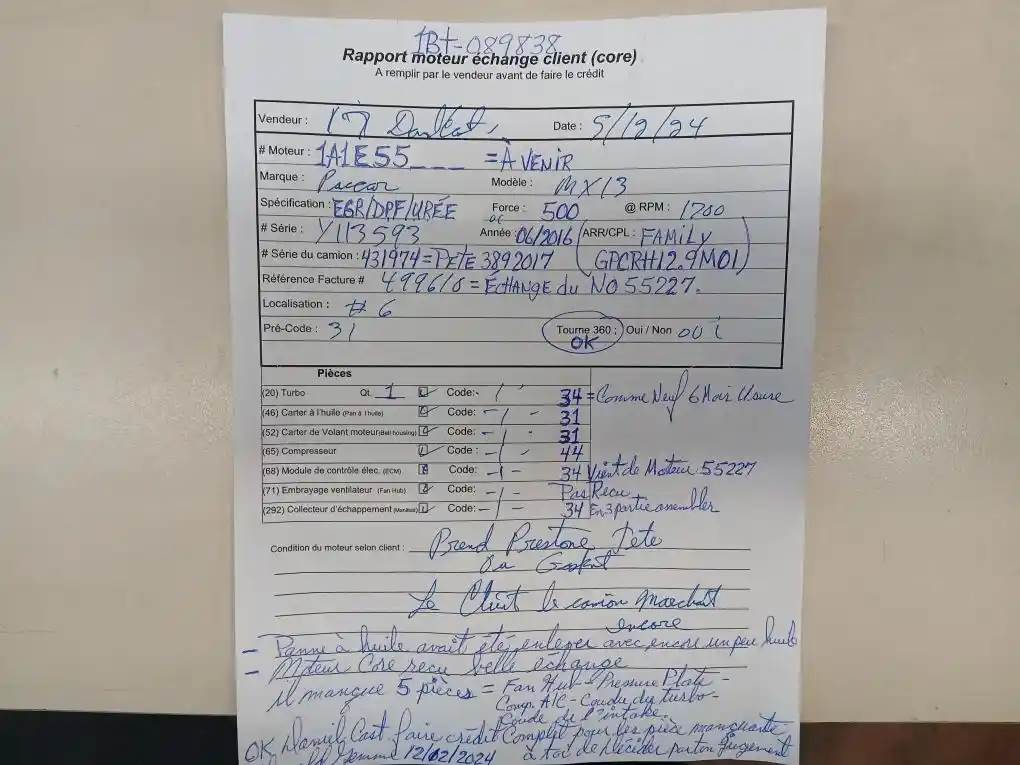 IBT-089838
Rapport moteur échange client (core)
A remplir par le vendeur avant de faire le crédit
Vendeur : Date : 5/12/24
# Moteur : 1A1E55___ = À VENIR
Marque : Paccar Modèle : MX13
Spécification : EGR/DPF/URÉE Force : 500 @ RPM : 1700
# Série : Y113593 Année : 06/2016 ARR/CPL : FAMILY
# Série du camion : 431974 = PETE 389 2017 GPCRH12.9M01)
Référence Facture # 499610 = ÉCHANGE du NO 55227.
Localisation : # 6
Pré-Code : 31 Tourne 360 : Oui / Non oui
OK
Pièces
(20) Turbo Qt. 1 Code: - / - 34 = Comme Neuf 6 Mois Usure
(46) Carter à l'huile (Pan à l'huile) Code: - / - 31
(52) Carter de Volant moteur (Bell housing) Code: - / - 31
(65) Compresseur Code : - / - 44
(68) Module de contrôle élec. (ECM) Code: - / - 34 Vient de Moteur 55227
(71) Embrayage ventilateur (Fan Hub) Code: - / - Pas Recu
(292) Collecteur d'échappement (Manifold) Code: - / - 34 En 3 partie assembler
Condition du moteur selon client : Prend Prestone Tete
Ou Gasket
Le Client le camion marchait
encore
- Panne à huile avait été enlever avec encore un peu huile
- Moteur Core recu belle échange
il manque 5 pièces = Fan Hub - Pressure Plate -
Comp. A/C - Coude du turbo -
Coude de l'intake.
OK Daniel Cast. faire crédit Complet pour les pièce manquante
12/02/2024 à toi de décider par ton jugement